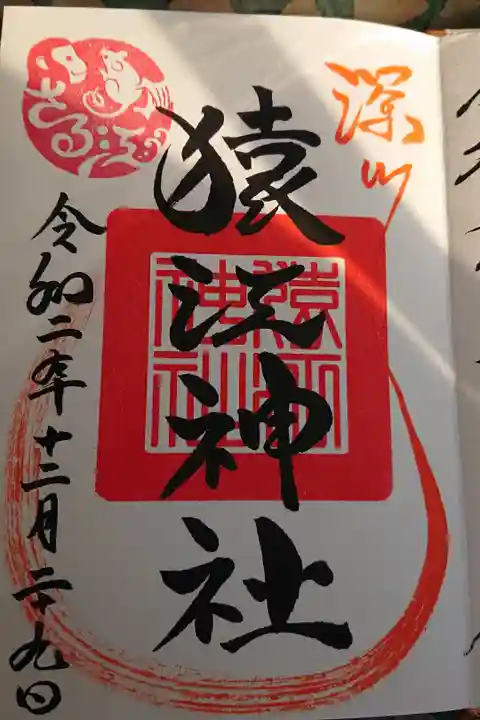 深川
猿江神社
猿江
神社
さる江
令和二年十二月二十九日